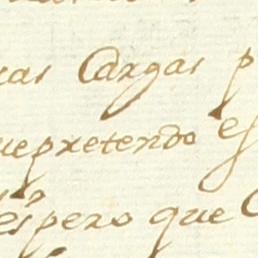 cas Cargas p
que pretendo es
espero que C